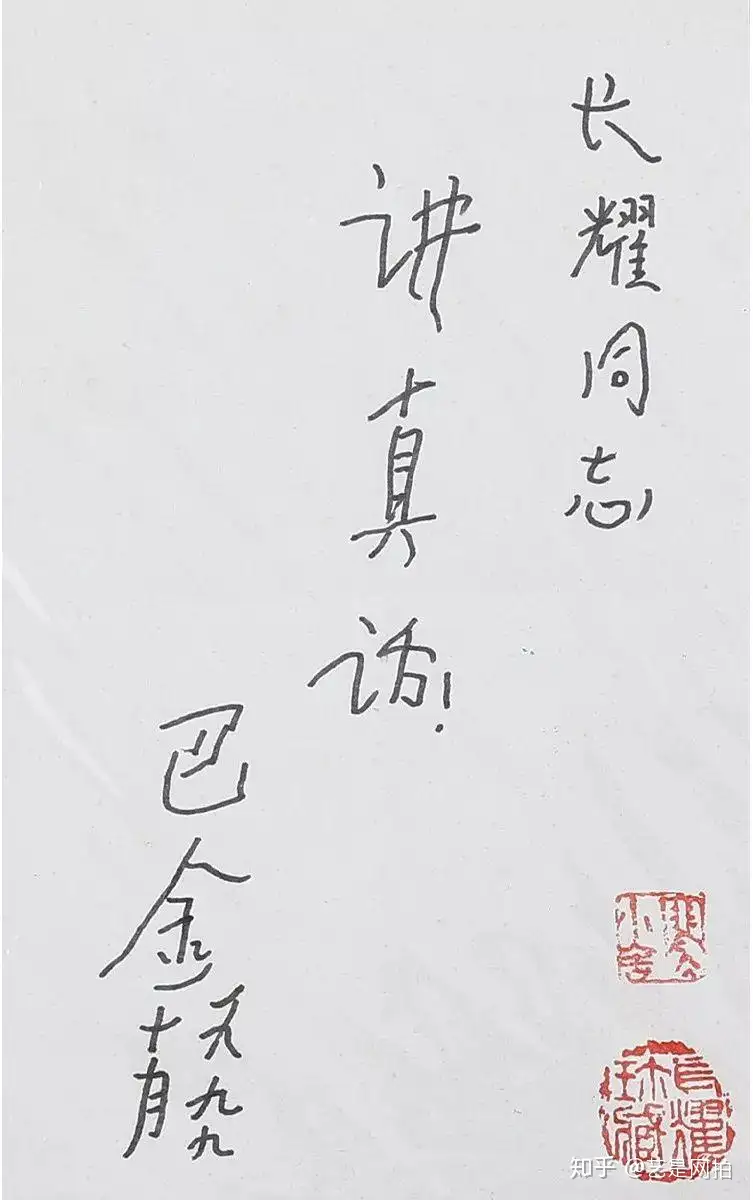 长耀同志
讲真话!
巴金
一九九九
十月
长耀
珍藏
知乎 @艺是网拍